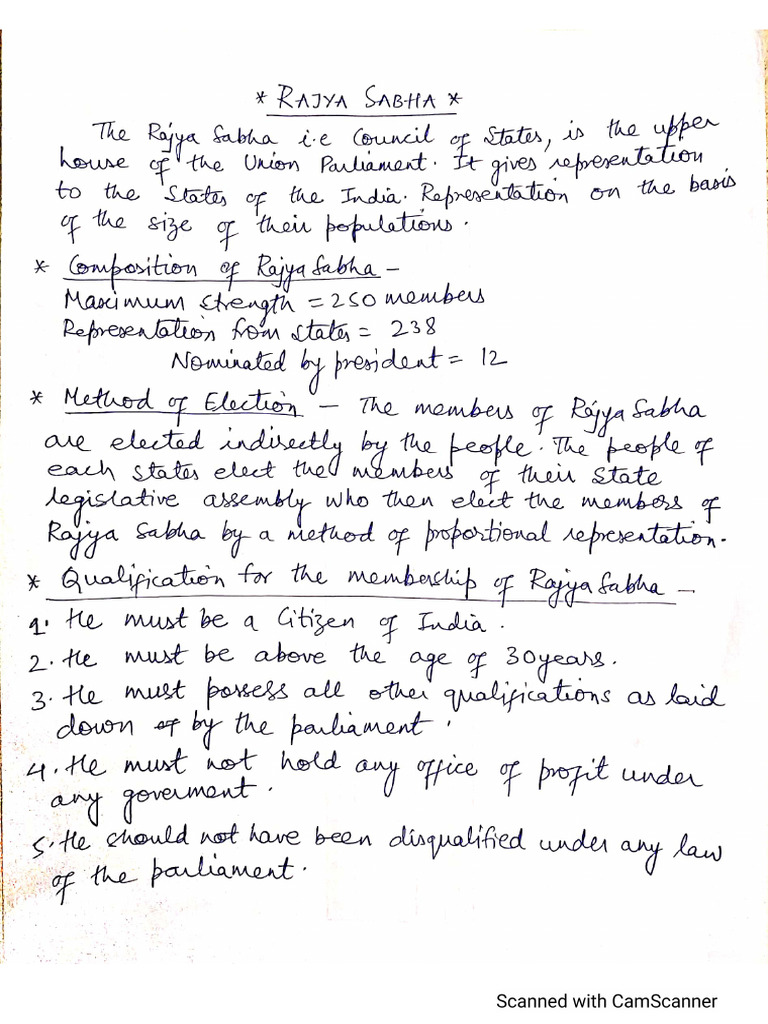 * RAJYA SABHA *
The Rajya Sabha i.e Council of States, is the upper
house of the Union Parliament. It gives representation
to the States of the India. Representation on the basis
of the size of their populations.
* Composition of Rajya Sabha –
Maximum strength = 250 members
Representation from states = 238
Nominated by president = 12
* Method of Election – The members of Rajya Sabha
are elected indirectly by the people. The people of
each states elect the members of their State
legislative assembly who then elect the members of
Rajya Sabha by a method of proportional representation.
* Qualification for the membership of Rajya Sabha –
1. He must be a Citizen of India.
2. He must be above the age of 30 years.
3. He must possess all other qualifications as laid
down by the parliament.
4. He must not hold any office of profit under
any goverment.
5. He should not have been disqualified under any law
of the parliament.
Scanned with CamScanner